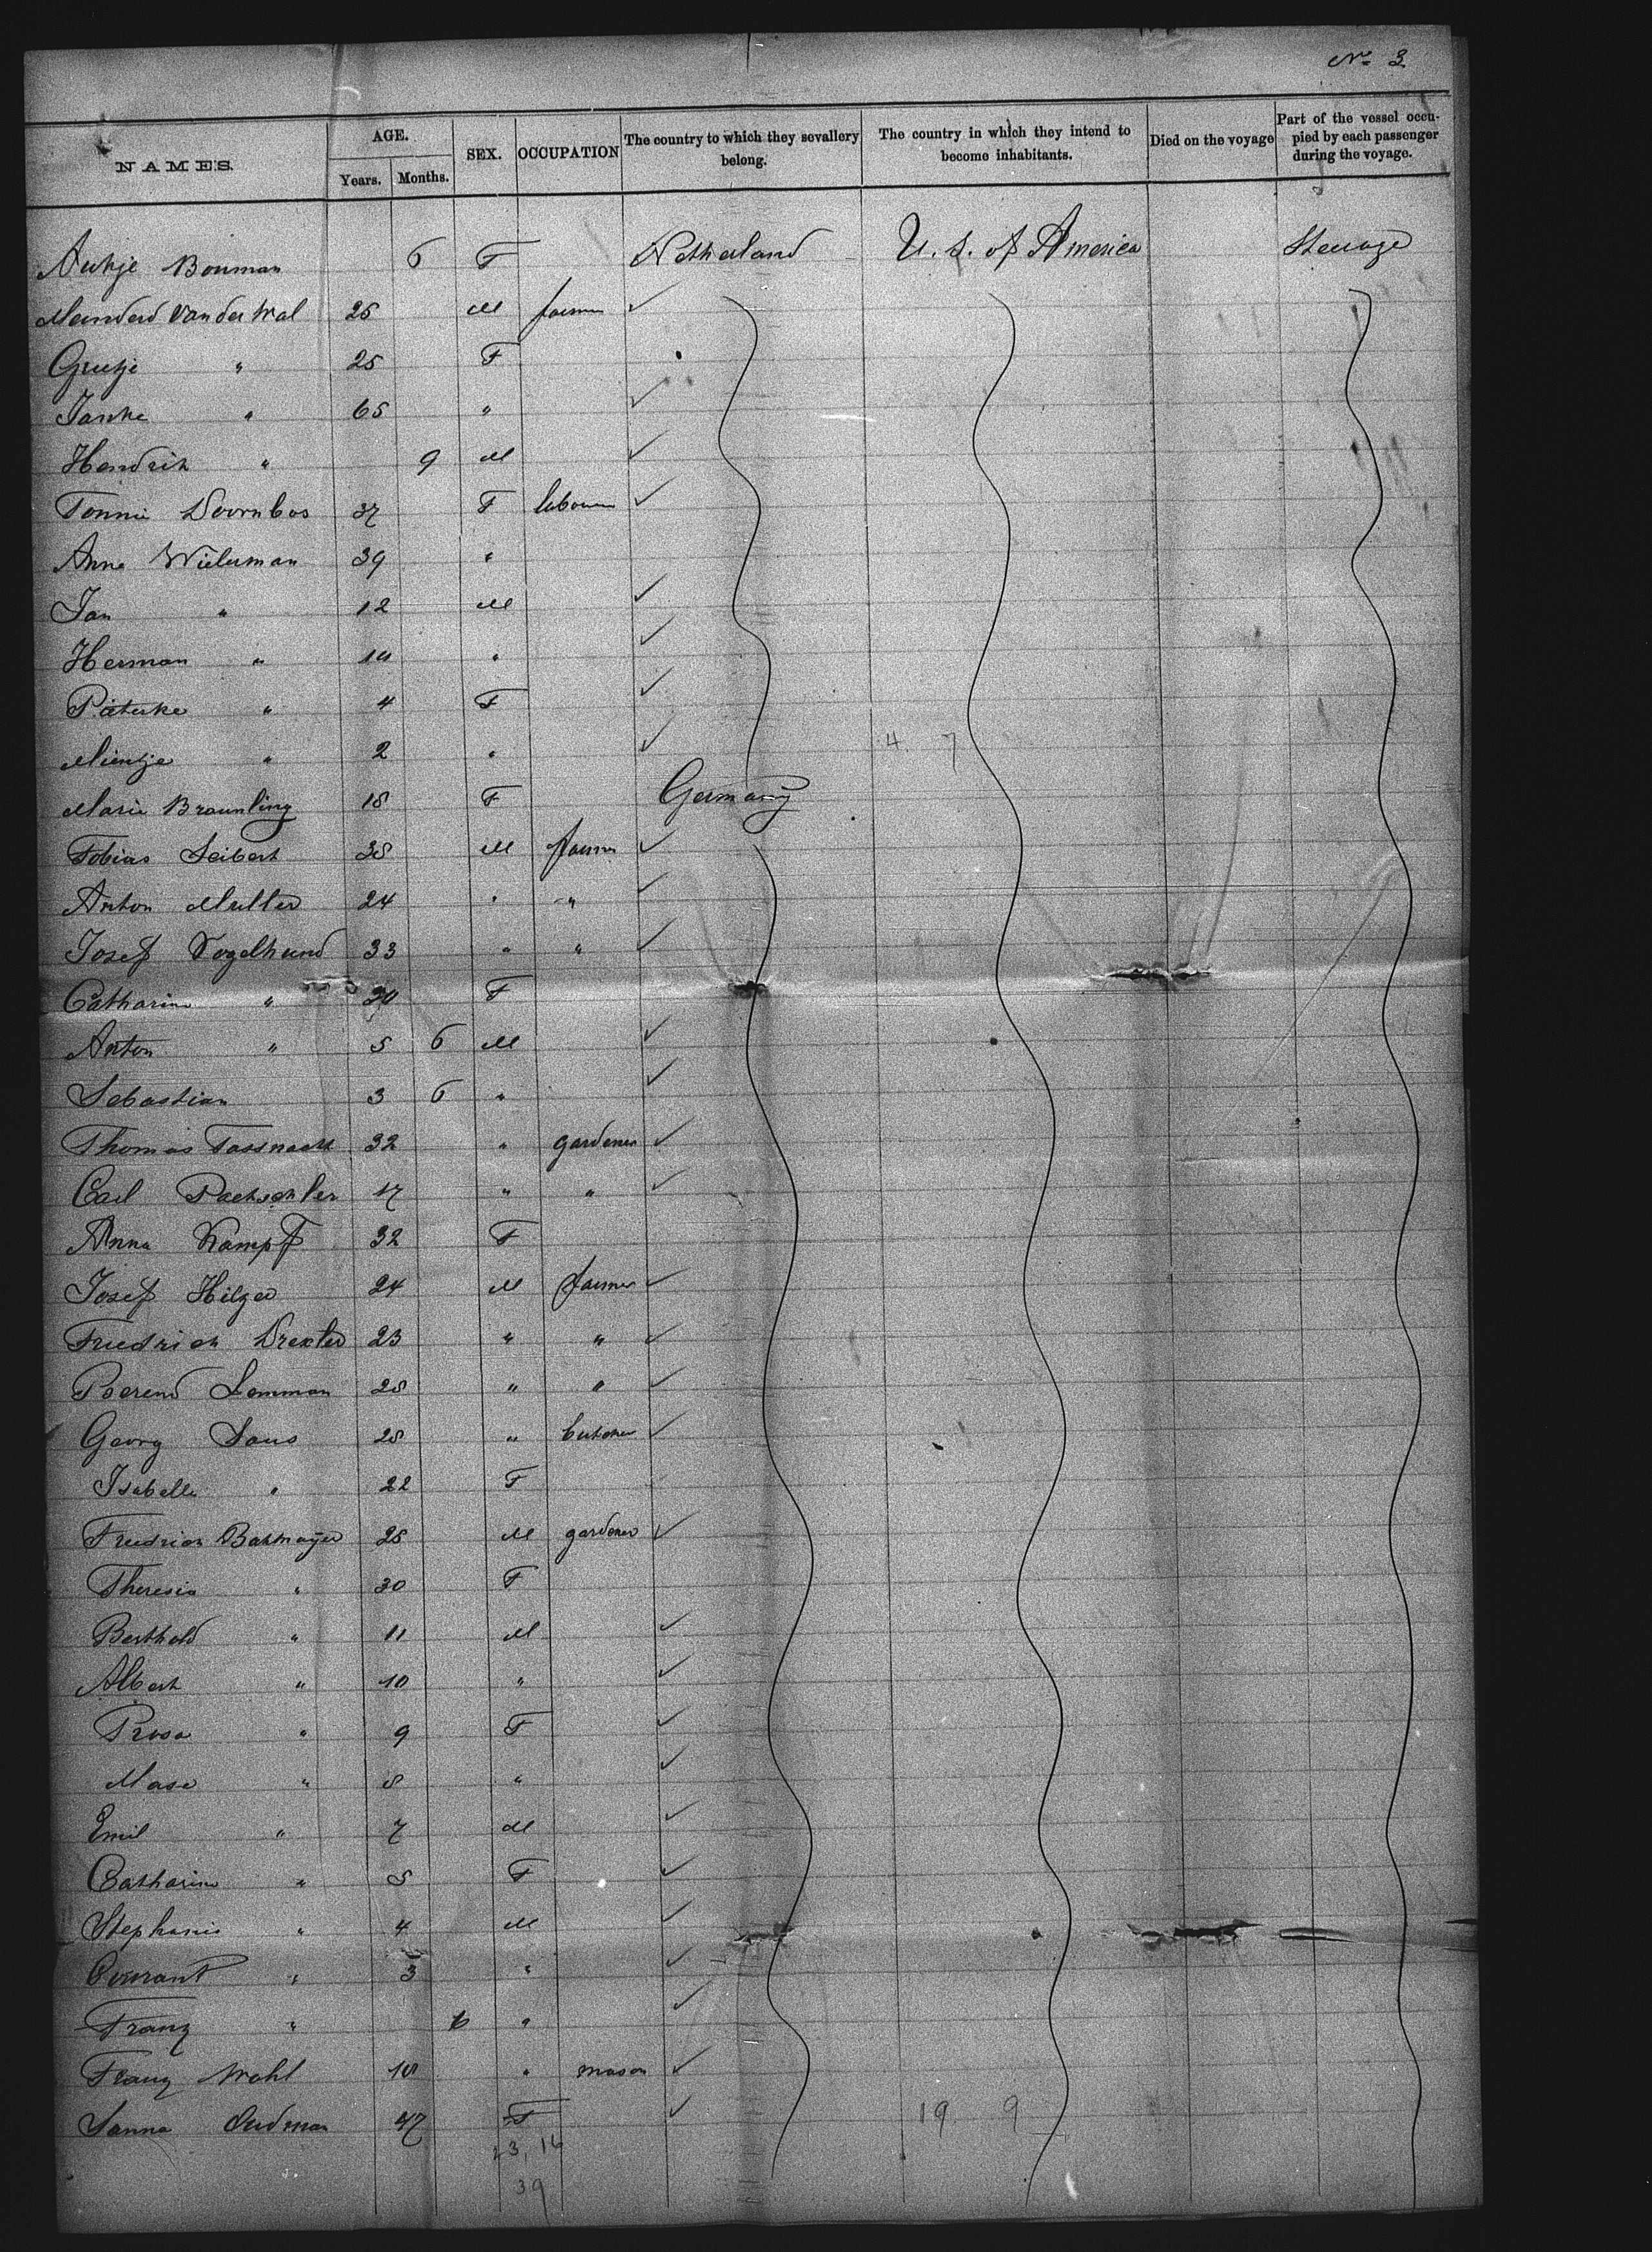 No 3
NAMES. AGE. Years. Months. SEX. OCCUPATION The country to which they sevallery belong. The country in which they intend to become inhabitants. Died on the voyage Part of the vessel occupied by each passenger during the voyage.
Auktje Bouman 6 F Netherland U. S. of America Steerage
Meinderd Van der Wal 25 M farmer
Grietje " 25 F
Janke " 65 "
Hendrik " 9 M
Tonnie Doornbos 37 F labourer
Anna Wielerman 39 "
Jan " 12 M
Herman " 10 "
Pieterke " 4 F
Mientje " 2 " 4 7
Marie Braunling 18 F Germany
Tobias Seibert 38 M farmer
Anton Muller 24 " "
Josef Vogelhund 33 " "
Catharine " 30 F
Anton " 5 6 M
Sebastian 3 6 "
Thomas Fassnacht 32 " gardener
Carl Patschler 17 " "
Anna Kampf 32 F
Josef Hilger 24 M farmer
Friedrich Drexler 23 " "
Berend Lemman 28 " "
Georg Saus 28 " butcher
Isabella " 22 F
Friedrich Bahmayer 25 M gardener
Theresia " 30 F
Berthold " 11 M
Albert " 10 "
Rosa " 9 F
" 8 "
Emil " 7 M
Catharine " 5 F
Stephanie " 4 M
" 3 "
Franz " 6 "
Franz Wohl 18 " mason
Sanna Oudman 47 F 19 9
23, 16
39